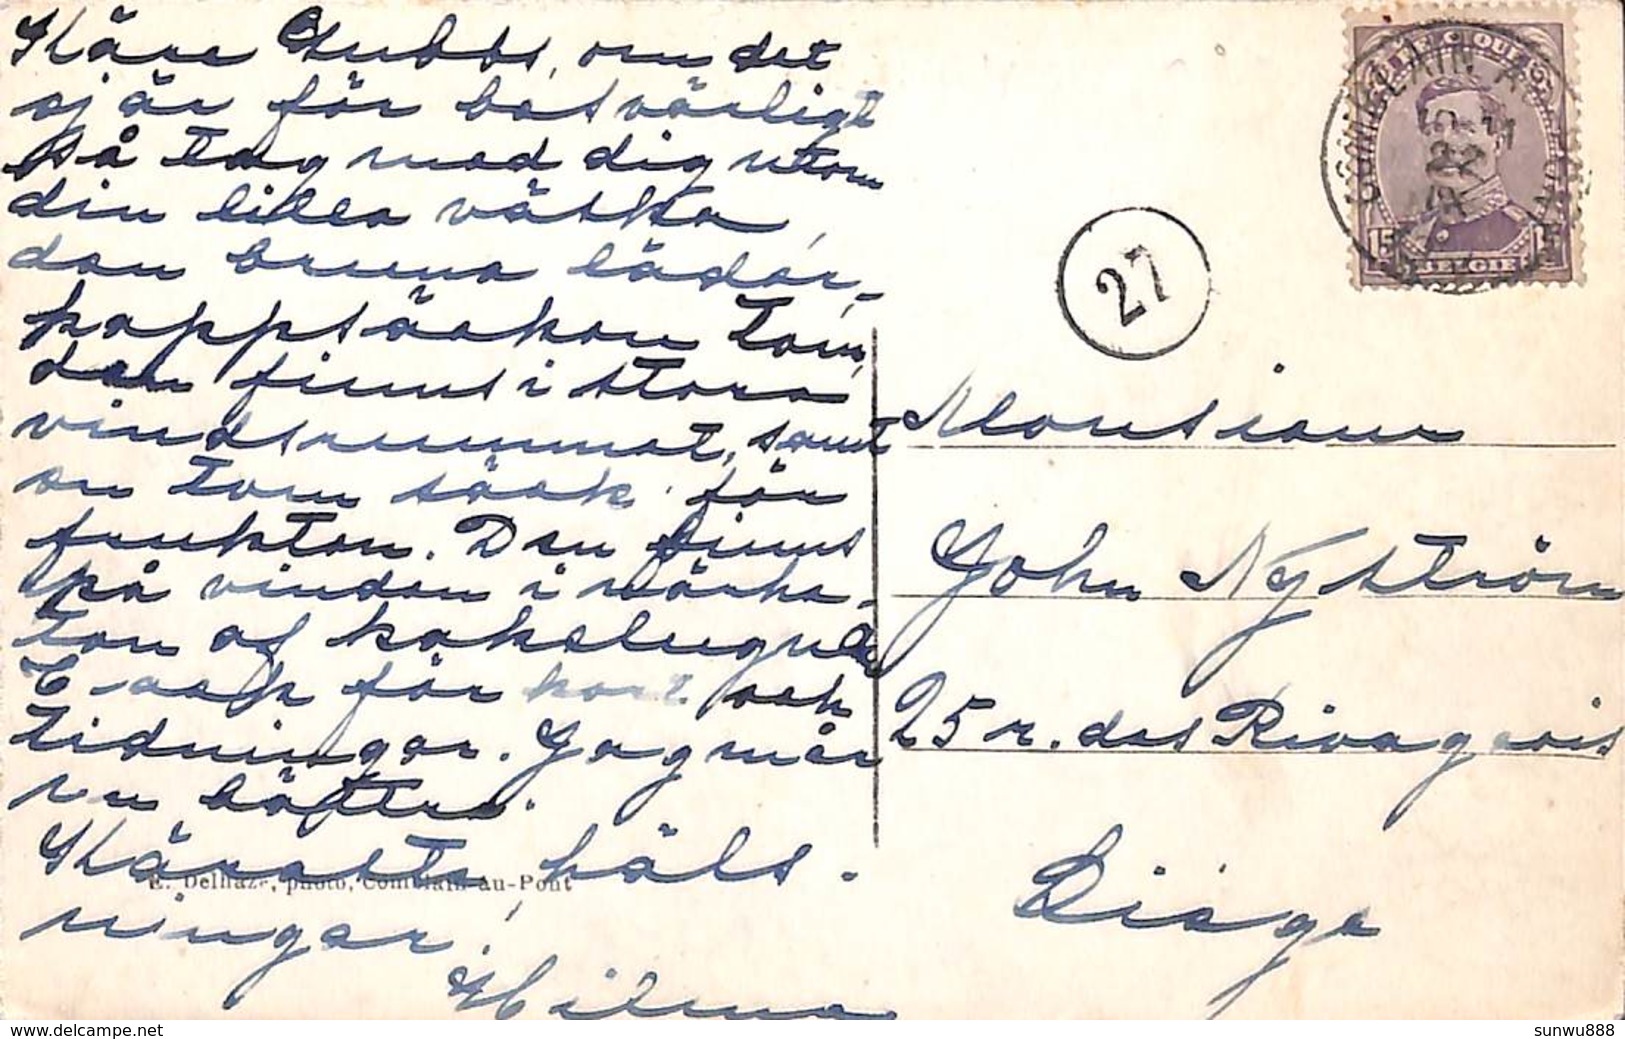 Käre Gubbs, om det
ej är för besvärligt
så tag med dig utom
din lilla väska,
den bruna läder-
kappsäcken tom,
den finns i stora
vindsrummet, samt
en tom säck för
frukten. Den finns
på vinden i närhe-
ten af kakelugnen
E-ack för kort och
tidningar. Jag mår
nu bättre.
Käraste häls-
ningar,
Hilma
E. Delhaze, photo, Comblain-au-Pont
27
BELGIQUE
15 15
BELGIE
COMBLAIN-A PONT
22
Monsieur
John Nyström
25 r. des Rivageois
Liège
sunwu888